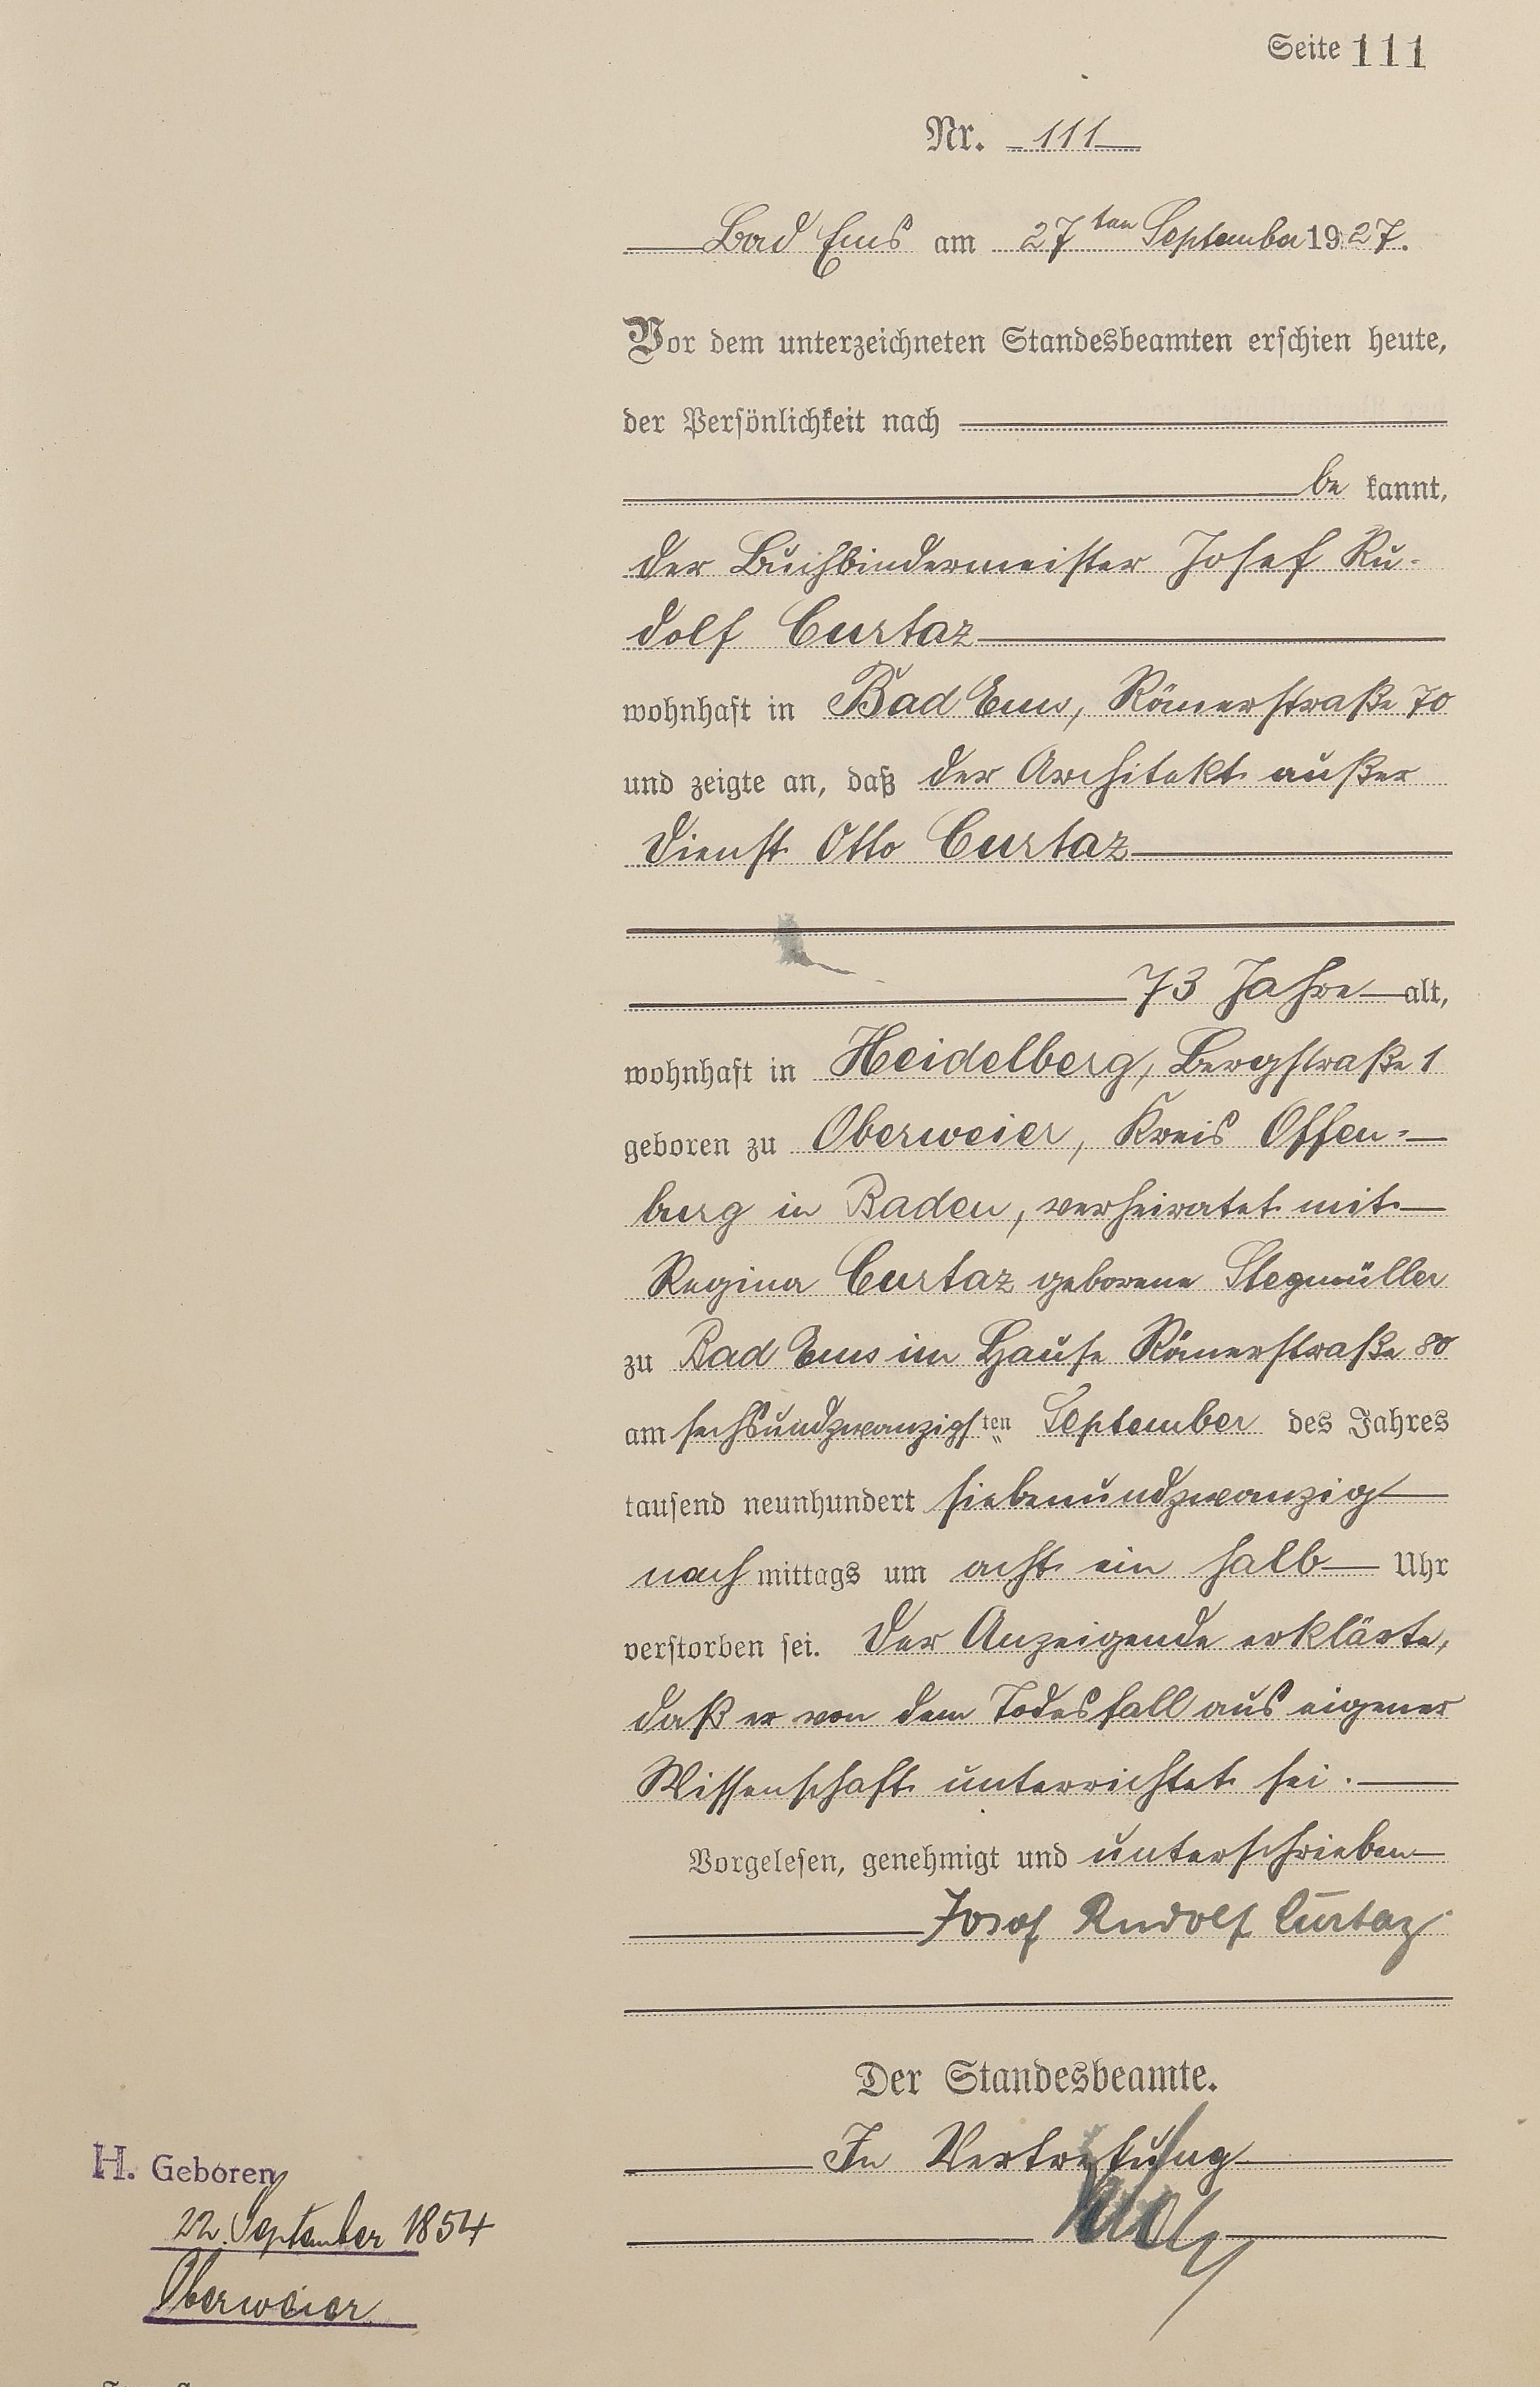 Seite 111
Nr. 111
Bad Ems am 27ten September 1927.
Vor dem unterzeichneten Standesbeamten erschien heute,
der Persönlichkeit nach
be kannt,
der Buchbindermeister Josef Ru-
dolf Curtaz
wohnhaft in Bad Ems, Römerstraße 70
und zeigte an, daß der Architekt außer
Dienst Otto Curtaz
73 Jahre alt,
wohnhaft in Heidelberg, Bergstraße 1
geboren zu Oberweier, Kreis Offen-
burg in Baden, verheiratet mit
Regina Curtaz geborene Stegmüller
zu Bad Ems im Hause Römerstraße 80
am sechsundzwanzigsten September des Jahres
tausend neunhundert siebenundzwanzig
nach mittags um acht ein halb Uhr
verstorben sei. Der Anzeigende erklärte,
daß er von dem Todesfall aus eigener
Wissenschaft unterrichtet sei.
Vorgelesen, genehmigt und unterschrieben
Josef Rudolf Curtaz
Der Standesbeamte.
In Vertretung
H. Geboren
22. September 1854
Oberweier